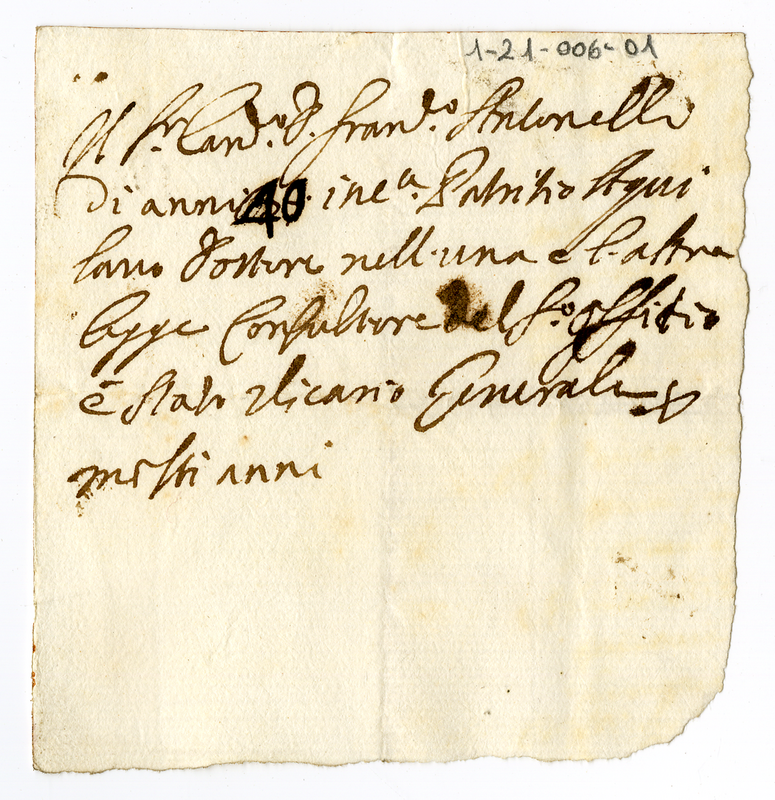 1-21-006-01
Il Sr. Cand.o D. Fran.o Antonelli
di anni 40 in c.a Patritio Aqui
lano Dottore nell'una e l'altra
legge Consultore del S.o Offitio
è stato Vicario Generale
molti anni